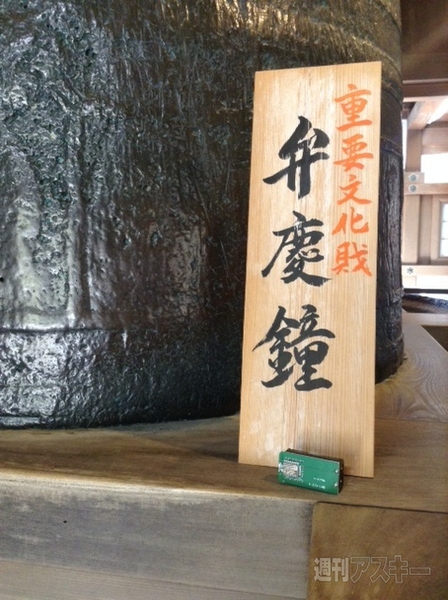 重要文化財
弁慶鐘
週刊アスキー